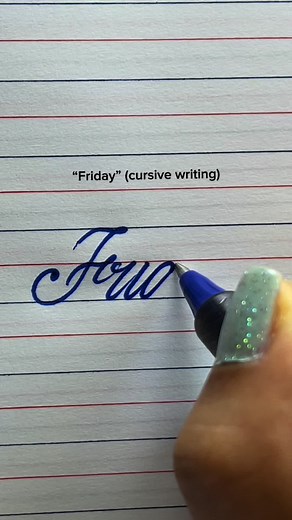 “Friday” (cursive writing)